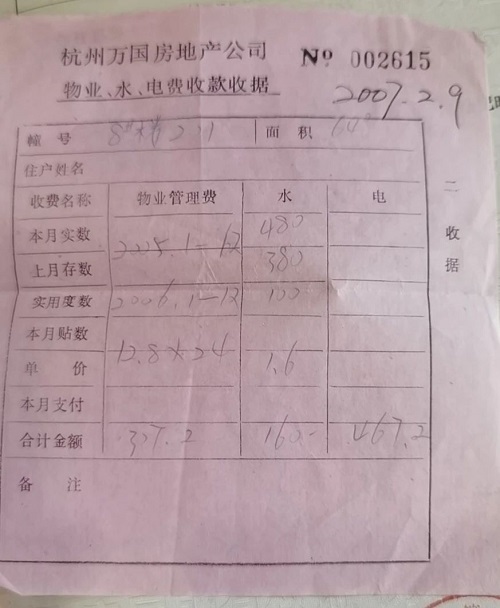 杭州万国房地产公司 № 002615
物业、水、电费收款收据 2007.2.9
幢号 面积
住户姓名
收费名称 物业管理费 水 电
本月实数 480
2005.1-12
上月存数 380
实用度数 2006.1-12 100
本月贴数
12.8×24
单价 1.6
本月支付
合计金额 307.2 160- 467.2
备注
二收据